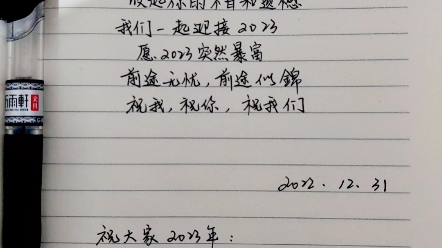 收起你的不甘和遗憾
我们一起迎接2023
愿2023突然暴富
前途无忧，前途似錦
祝我，祝你，祝我们
2022.12.31
祝大家2023年：
雨軒